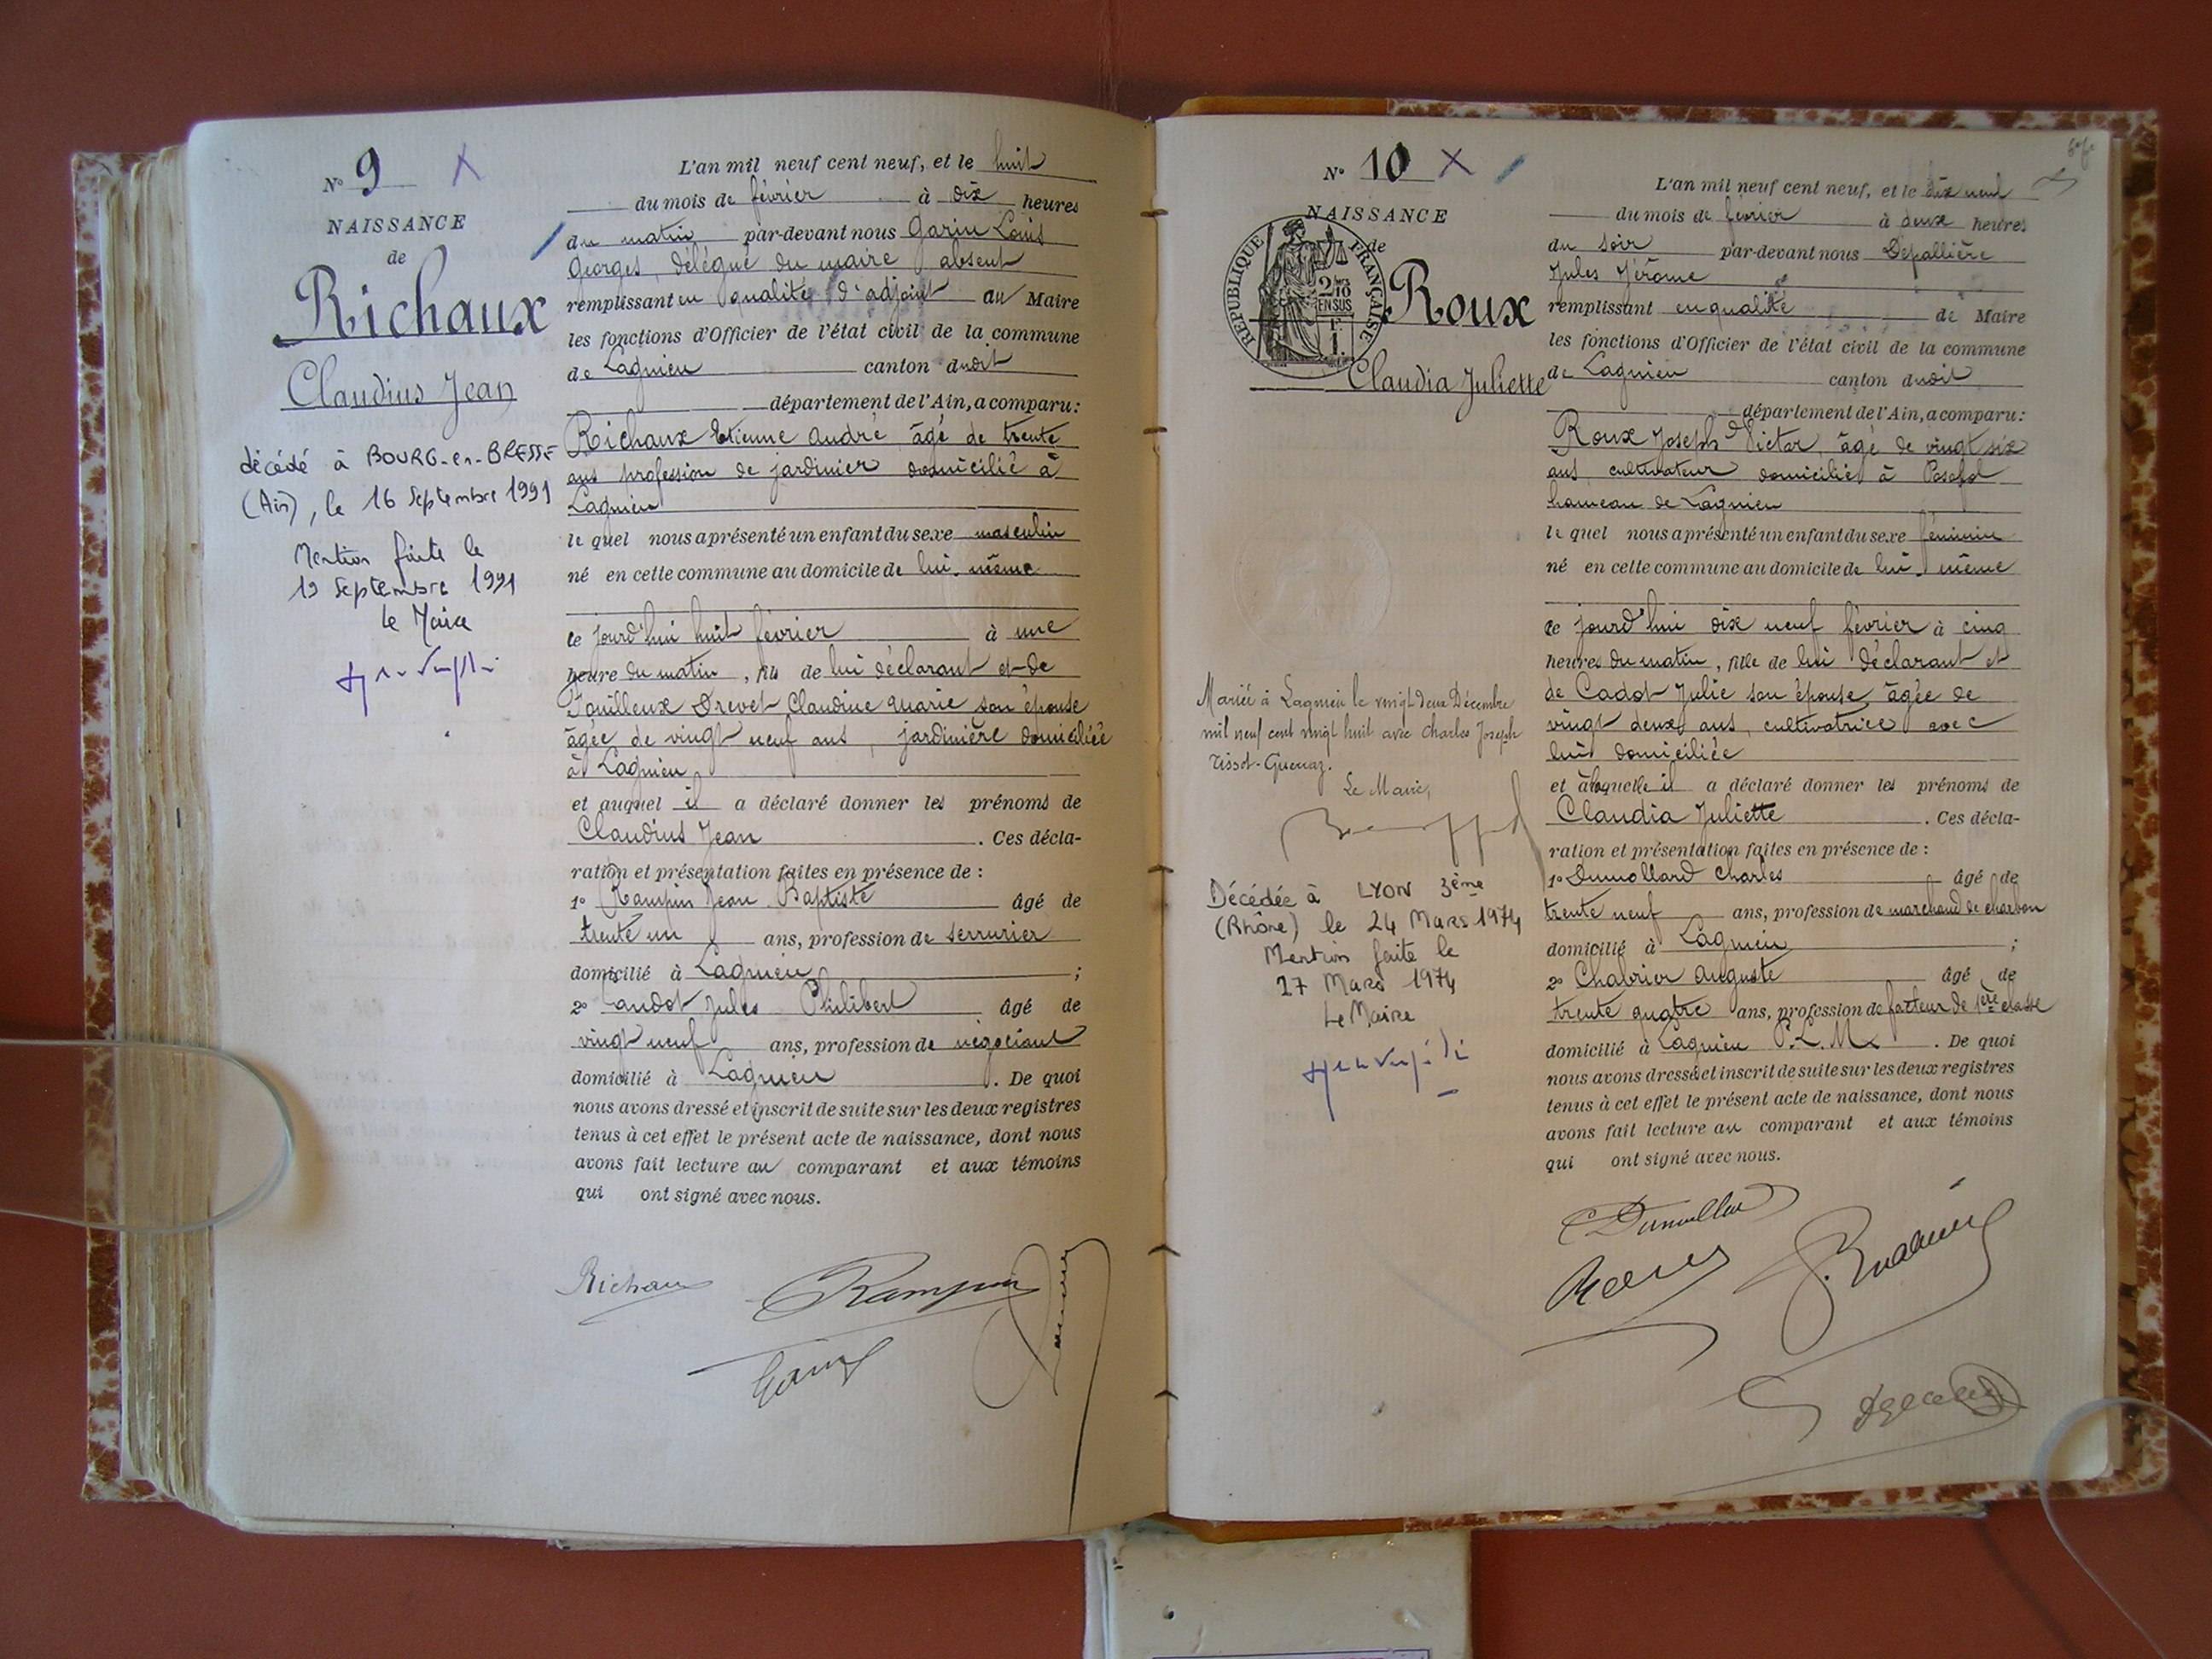 N° 9
NAISSANCE
de
Richaux
Claudius Jean
décédé à BOURG-en-BRESSE
(Ain), le 16 Septembre 1991
Mention faite le
19 Septembre 1991
le Maire
L'an mil neuf cent neuf, et le huit
du mois de février à dix heures
du matin par-devant nous Garin Louis
Georges, délégué du maire absent
remplissant en qualité d'adjoint au Maire
les fonctions d'Officier de l'état civil de la commune
de Lagnieu canton dudit
département de l'Ain, a comparu:
Richaux Etienne André âgé de trente
ans profession de jardinier domicilié à
Lagnieu
le quel nous a présenté un enfant du sexe masculin
né en cette commune au domicile de lui-même
ce jourd'hui huit février à une
heure du matin, fils de lui déclarant et de
Fouilleux Drevet Claudine Marie son épouse
âgée de vingt neuf ans, jardinière domiciliée
à Lagnieu
et auquel il a déclaré donner les prénoms de
Claudius Jean. Ces décla-
ration et présentation faites en présence de :
1° Rampin Jean Baptiste âgé de
trente un ans, profession de serrurier
domicilié à Lagnieu ;
2° Jules Philibert âgé de
vingt neuf ans, profession de négociant
domicilié à Lagnieu. De quoi
nous avons dressé et inscrit de suite sur les deux registres
tenus à cet effet le présent acte de naissance, dont nous
avons fait lecture au comparant et aux témoins
qui ont signé avec nous.
Richaux
Rampin
N° 10
NAISSANCE
de
RÉPUBLIQUE FRANÇAISE
2/10
EN SUS
Roux
Claudia Juliette
Mariée à Lagnieu le vingt deux Décembre
mil neuf cent vingt huit avec Charles Joseph
Tissot-Guerraz.
Le Maire,
Décédée à LYON 3ème
(Rhône) le 24 Mars 1974
Mention faite le
27 Mars 1974
Le Maire
L'an mil neuf cent neuf, et le dix neuf
du mois de février à deux heures
du soir par-devant nous Depallière
Jules Jérôme
remplissant en qualité de Maire
les fonctions d'Officier de l'état civil de la commune
de Lagnieu canton dudit
département de l'Ain, a comparu:
Roux Joseph Victor, âgé de vingt six
ans cultivateur domicilié à Posafol
hameau de Lagnieu
le quel nous a présenté un enfant du sexe féminin
né en cette commune au domicile de lui-même
ce jourd'hui dix neuf février à cinq
heures du matin, fille de lui déclarant et
de Cadot Julie son épouse, âgée de
vingt deux ans, cultivatrice avec
lui domiciliée
et à laquelle il a déclaré donner les prénoms de
Claudia Juliette. Ces décla-
ration et présentation faites en présence de :
1° Dumollard Charles âgé de
trente neuf ans, profession de marchand de charbon
domicilié à Lagnieu ;
2° Chabrier Auguste âgé de
trente quatre ans, profession de facteur de 1ère classe
domicilié à Lagnieu P.L.M. De quoi
nous avons dressé et inscrit de suite sur les deux registres
tenus à cet effet le présent acte de naissance, dont nous
avons fait lecture au comparant et aux témoins
qui ont signé avec nous.